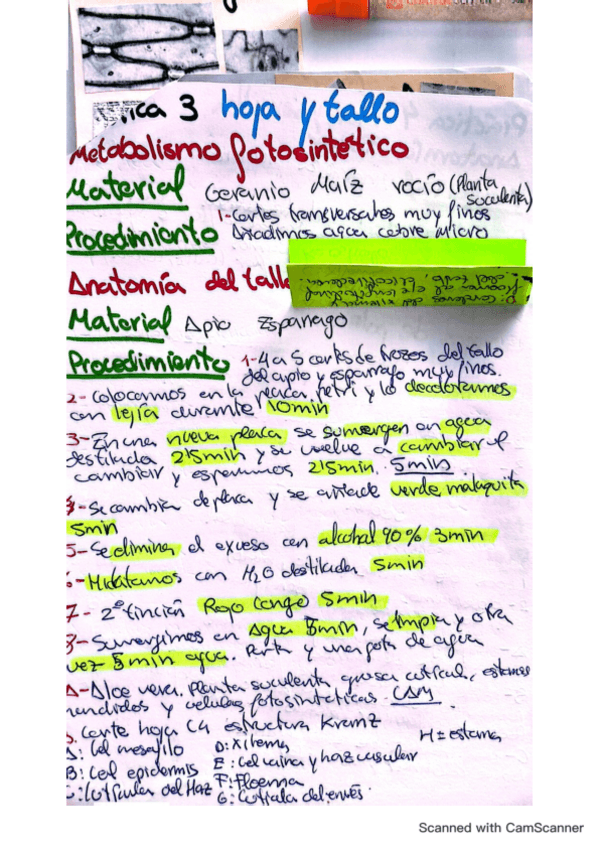 ica 3 hoja y tallo
Metabolismo fotosintético
Material Geranio Maíz rocío (Planta
suculenta)
1-Cortes transversales muy finos
Procedimiento Añadimos agua cobre micro
Anatomía del tallo
Material Apio Espárrago
Procedimiento 1-4 a 5 corts de trozos del tallo
del apio y esparrago muy finos.
2- Colocamos en la placa petri y lo decoloramos
con lejía durante 10min
3- En una nueva placa se sumergen en agua
destilada 2'5min y se vuelve a cambiar
cambiar y esperamos 2'5min. 5min
Se cambia de placa y se añade verde malaquita
5min
5- Se elimina el exceso con alcohol 90% 3min
6- Hidratamos con H2O destilada 5min
7- 2º tinción Rojo Congo 5min
8- Sumergimos en agua 5min, se limpia y otra
vez 5 min agua. Porta y una gota de agua
A- Aloe vera. Planta suculenta gruesa cutícula, estomas
hundidos y células fotosintéticas. CAM
Corte hoja C4 estructura Kranz
H = estoma
A: Cel mesofilo D: Xilema
B: Cel epidermis E: Cel vaina y haz vascular
C: Cutícula del Haz F: Floema
G: Cutícula del envés
Scanned with CamScanner